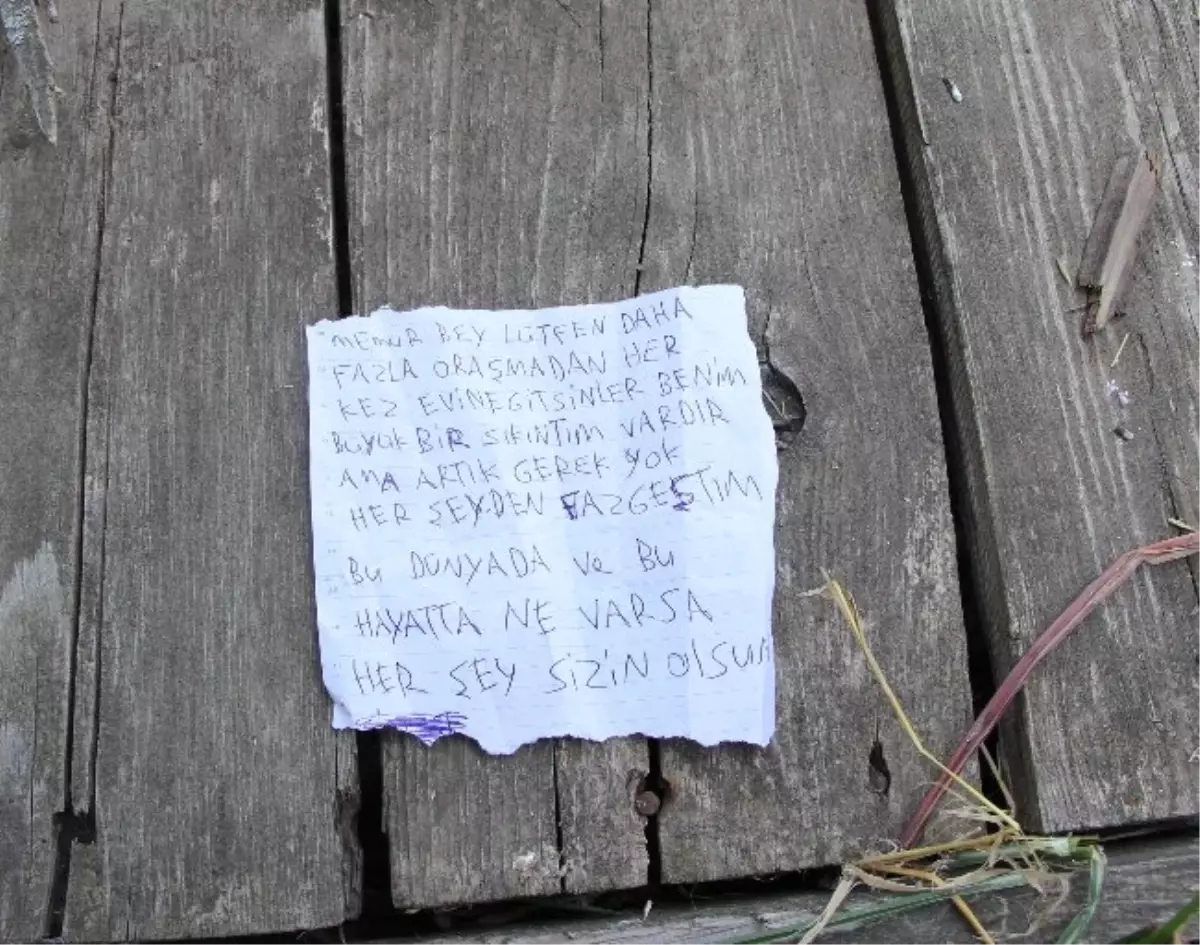 MEMUR BEY LÜTFEN DAHA
FAZLA ORAŞMADAN HER
KEZ EVİNEGİTSİNLER BENİM
BÜYÜK BİR SIKINTIM VARDIR
AMA ARTIK GEREK YOK
HER ŞEYDEN FAZGEŞTİM
BU DÜNYADA ve BU
HAYATTA NE VARSA
HER ŞEY SİZİN OlSUN